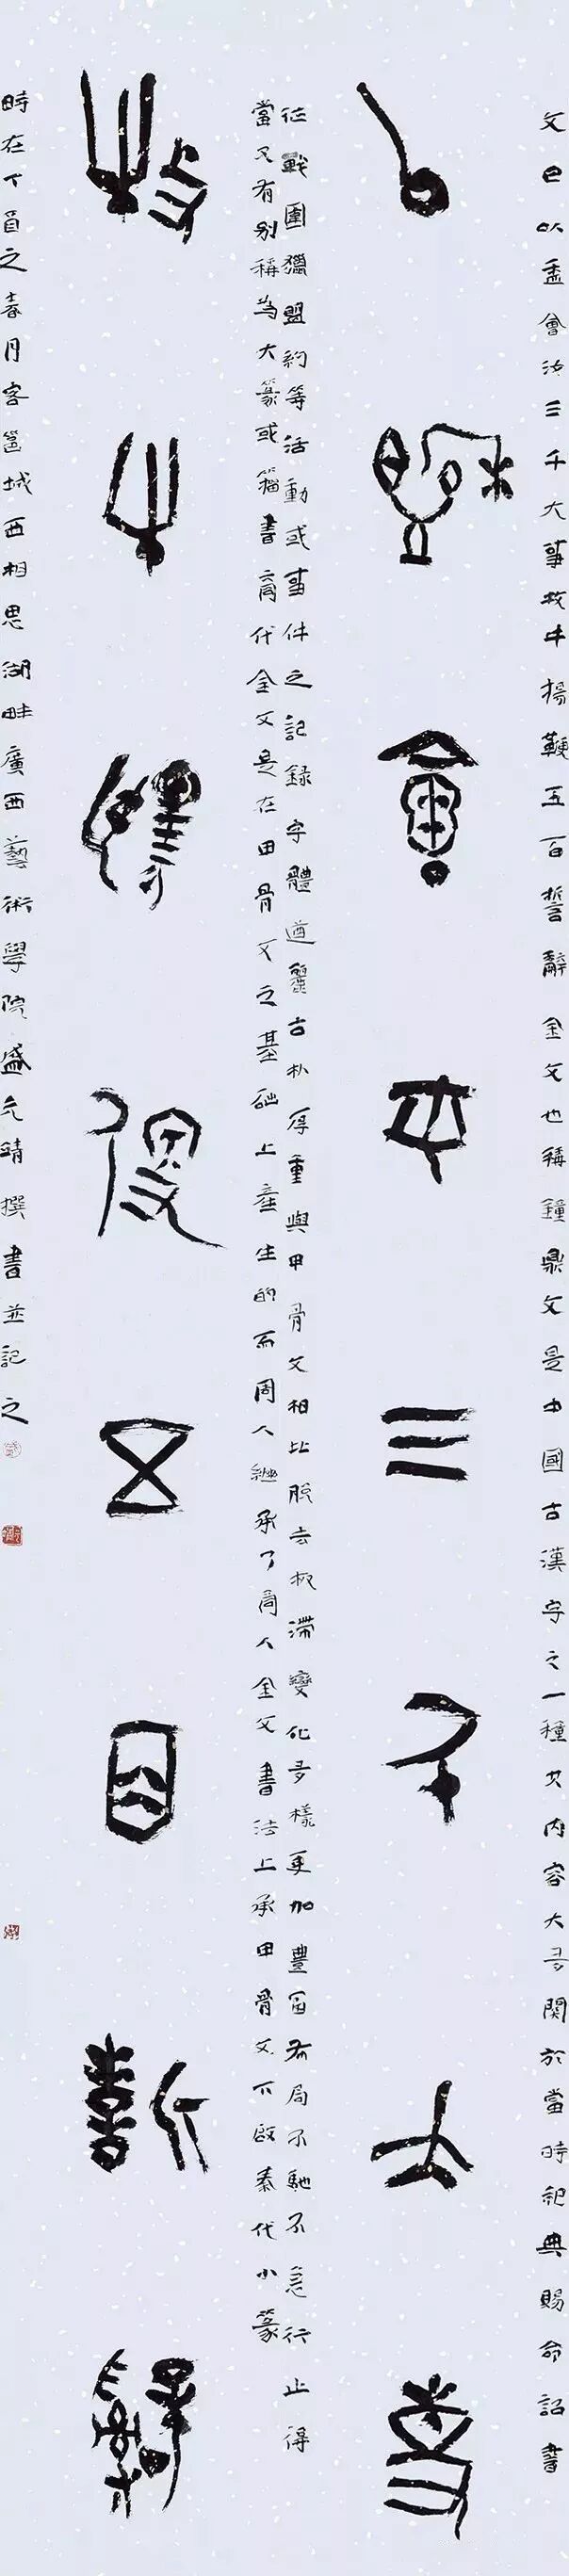 文已以盉會汝三千大事牧牛揚鞭五百誓辭金文也稱鐘鼎文是中國古漢字之一種其內容大多關於當時祀典賜命詔書
以盉會汝三千大事
征戰圍獵盟約等活動或事件之記錄字體遒麗古朴厚重與甲骨文相比脫去板滯變化多樣更加豐富布局不馳不急行止得
當又有別稱為大篆或籀書商代金文是在甲骨文之基礎上產生的而周人繼承了商人金文書法上承甲骨文下啟秦代小篆
牧牛揚鞭五百誓辭
時在丁酉之春月客邕城西相思湖畔廣西藝術學院盛元靖撰書並記之